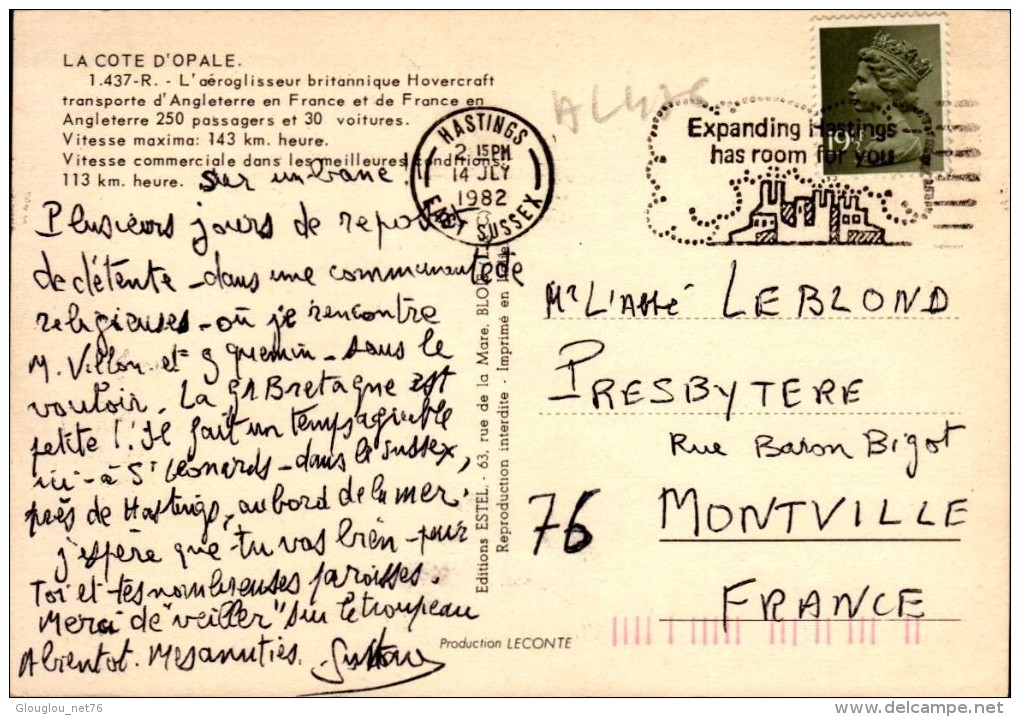 LA COTE D'OPALE.
1.437-R. - L'aéroglisseur britannique Hovercraft
transporte d'Angleterre en France et de France en
Angleterre 250 passagers et 30 voitures.
Vitesse maxima: 143 km. heure.
Vitesse commerciale dans les meilleures conditions:
113 km. heure.
sur un banc!
Plusieurs jours de repos et
de détente - dans une communauté de
religieuses - où je rencontre
M. Villon et g quemin - sans le
vouloir. La Gde Bretagne est
petite !! Il fait un temps agréable
ici - à St Leonards - dans le Sussex,
près de Hastings, au bord de la mer.
j'espère que tu vas bien - pour
Toi et tes nombreuses paroisses.
Merci de "veiller" sur le troupeau
A bientot. Mes amitiés. Gustave
HASTINGS
2. 15 PM
14 JLY
1982
EAST SUSSEX
Expanding Hastings
has room for you
19½
Mr L'abbé LEBLOND
PRESBYTERE
Rue Baron Bigot
76 MONTVILLE
FRANCE
Editions ESTEL. - 63, rue de la Mare, BLOIS
Reproduction interdite - Imprimé en Italie
Production LECONTE
Glouglou_net76